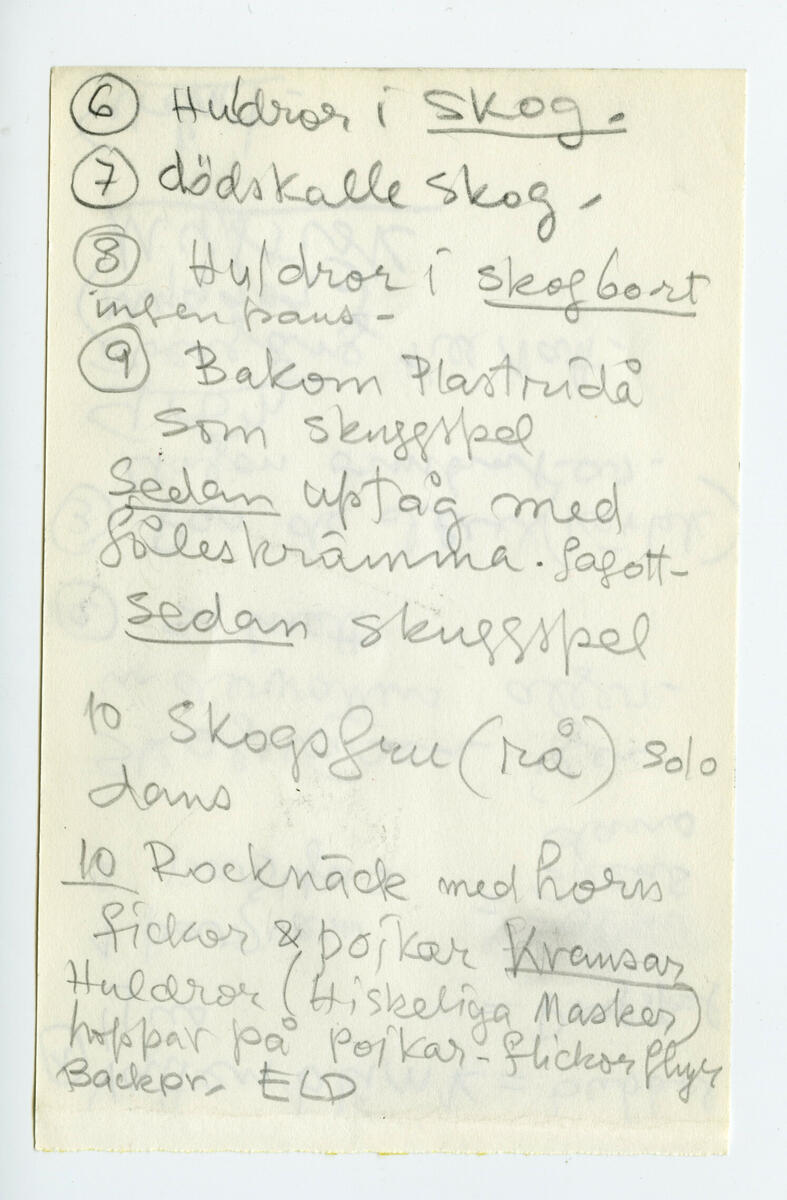 6 Huldror i skog.
7 dödskalle skog -
8 Huldror i skogbort
ingen paus -
9 Bakom Plastridå
som skuggspel
Sedan uptåg med
fåleskrämma. fagott -
sedan skuggspel
10 Skogsfru (rå) solo
dans
10 Rocknäck med horn
fickor & pojkar Kransar
Huldror (Hiskeliga Masker)
hoppar på Pojkar - flickor flyr
Backpr. ELD